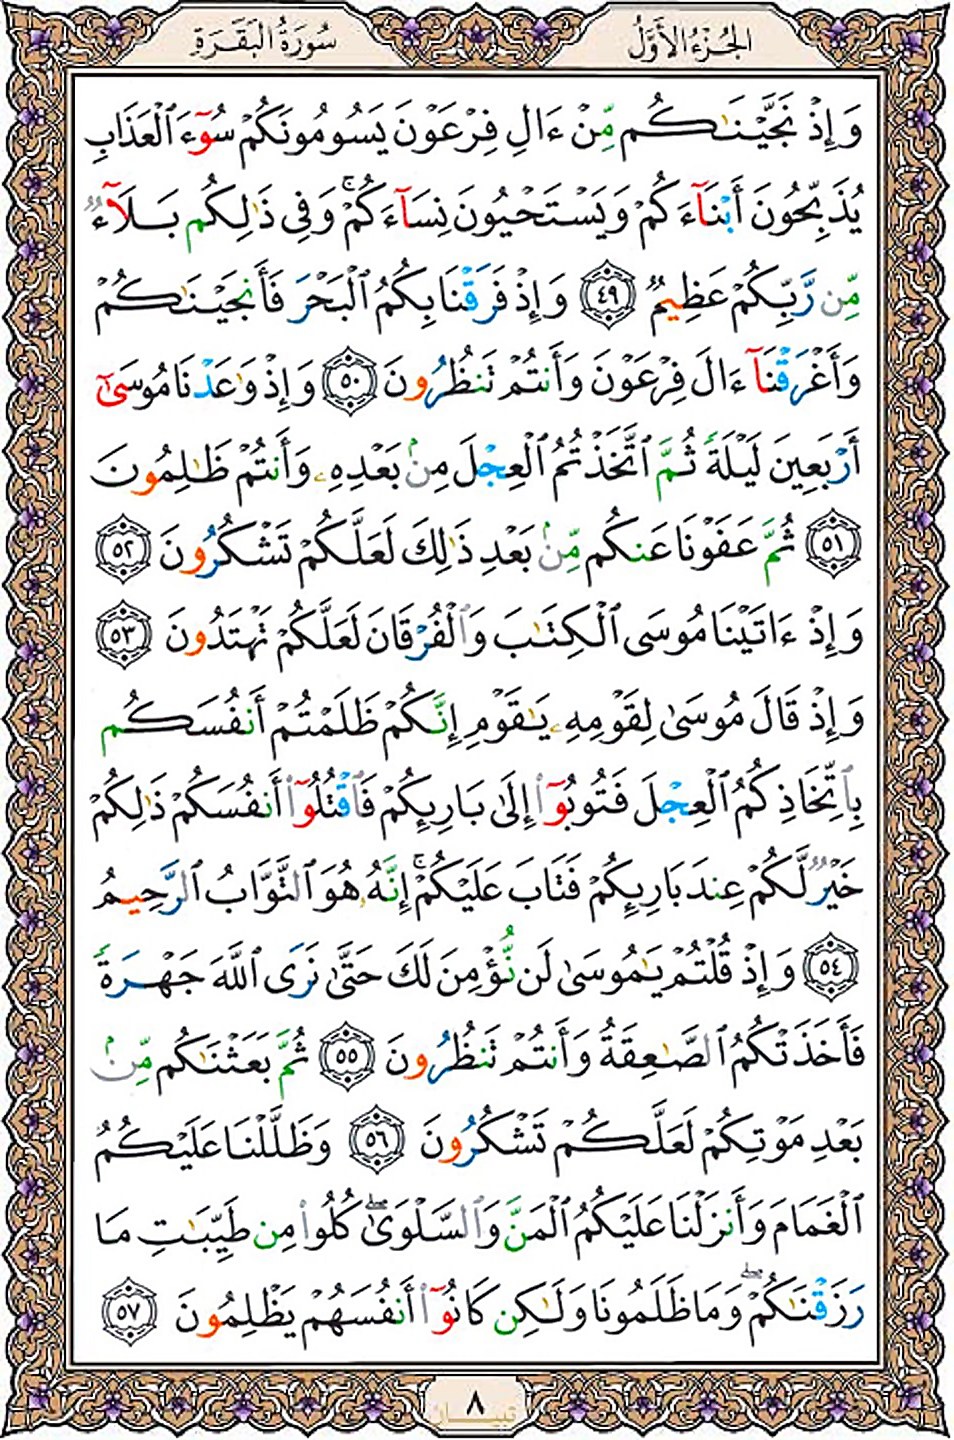 الجُزْءُ الأَوَّلُ
سُورَةُ البَقَرَةِ
وَإِذْ نَجَّيْنَـٰكُم مِّنْ ءَالِ فِرْعَوْنَ يَسُومُونَكُمْ سُوٓءَ ٱلْعَذَابِ
يُذَبِّحُونَ أَبْنَآءَكُمْ وَيَسْتَحْيُونَ نِسَآءَكُمْ ۚ وَفِى ذَٰلِكُم بَلَآءٌ
مِّن رَّبِّكُمْ عَظِيمٌ ٤٩ وَإِذْ فَرَقْنَا بِكُمُ ٱلْبَحْرَ فَأَنجَيْنَـٰكُمْ
وَأَغْرَقْنَآ ءَالَ فِرْعَوْنَ وَأَنتُمْ تَنظُرُونَ ٥٠ وَإِذْ وَٰعَدْنَا مُوسَىٰٓ
أَرْبَعِينَ لَيْلَةً ثُمَّ ٱتَّخَذْتُمُ ٱلْعِجْلَ مِنۢ بَعْدِهِۦ وَأَنتُمْ ظَـٰلِمُونَ
٥١ ثُمَّ عَفَوْنَا عَنكُم مِّنۢ بَعْدِ ذَٰلِكَ لَعَلَّكُمْ تَشْكُرُونَ ٥٢
وَإِذْ ءَاتَيْنَا مُوسَى ٱلْكِتَـٰبَ وَٱلْفُرْقَانَ لَعَلَّكُمْ تَهْتَدُونَ ٥٣
وَإِذْ قَالَ مُوسَىٰ لِقَوْمِهِۦ يَـٰقَوْمِ إِنَّكُمْ ظَلَمْتُمْ أَنفُسَكُم
بِٱتِّخَاذِكُمُ ٱلْعِجْلَ فَتُوبُوٓا۟ إِلَىٰ بَارِئِكُمْ فَٱقْتُلُوٓا۟ أَنفُسَكُمْ ذَٰلِكُمْ
خَيْرٌ لَّكُمْ عِندَ بَارِئِكُمْ فَتَابَ عَلَيْكُمْ ۚ إِنَّهُۥ هُوَ ٱلتَّوَّابُ ٱلرَّحِيمُ
٥٤ وَإِذْ قُلْتُمْ يَـٰمُوسَىٰ لَن نُّؤْمِنَ لَكَ حَتَّىٰ نَرَى ٱللَّهَ جَهْرَةً
فَأَخَذَتْكُمُ ٱلصَّـٰعِقَةُ وَأَنتُمْ تَنظُرُونَ ٥٥ ثُمَّ بَعَثْنَـٰكُم مِّنۢ
بَعْدِ مَوْتِكُمْ لَعَلَّكُمْ تَشْكُرُونَ ٥٦ وَظَلَّلْنَا عَلَيْكُمُ
ٱلْغَمَامَ وَأَنزَلْنَا عَلَيْكُمُ ٱلْمَنَّ وَٱلسَّلْوَىٰ ۖ كُلُوا۟ مِن طَيِّبَـٰتِ مَا
رَزَقْنَـٰكُمْ ۖ وَمَا ظَلَمُونَا وَلَـٰكِن كَانُوٓا۟ أَنفُسَهُمْ يَظْلِمُونَ ٥٧
٨
تبيان